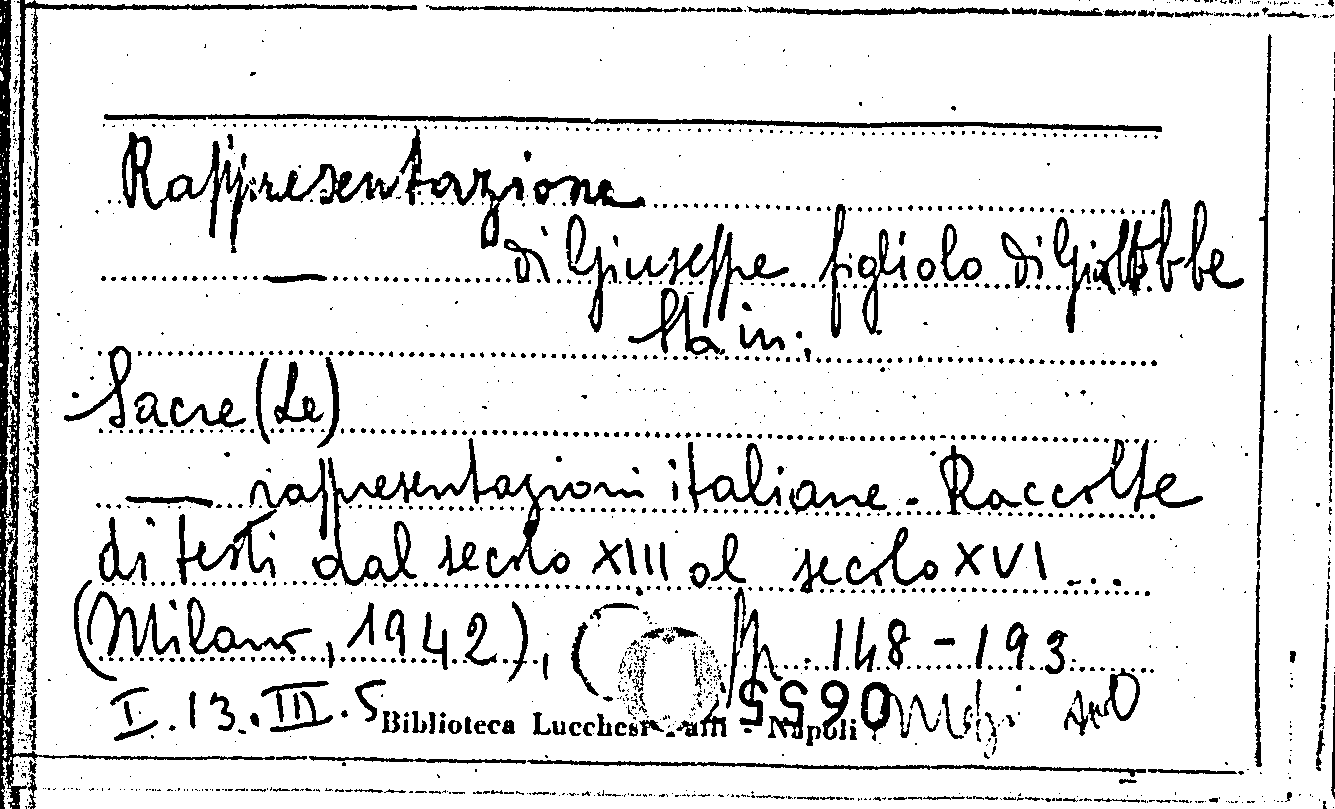 Rappresentazione
— di Giuseppe figliolo di Giacobbe
Sta in:
Sacre (Le)
— rappresentazioni italiane - Raccolte
di testi dal secolo XIII al secolo XVI ...
(Milano, 1942), pp. 148-193
I.13.III.5
Biblioteca Lucchesi - Palli - Napoli